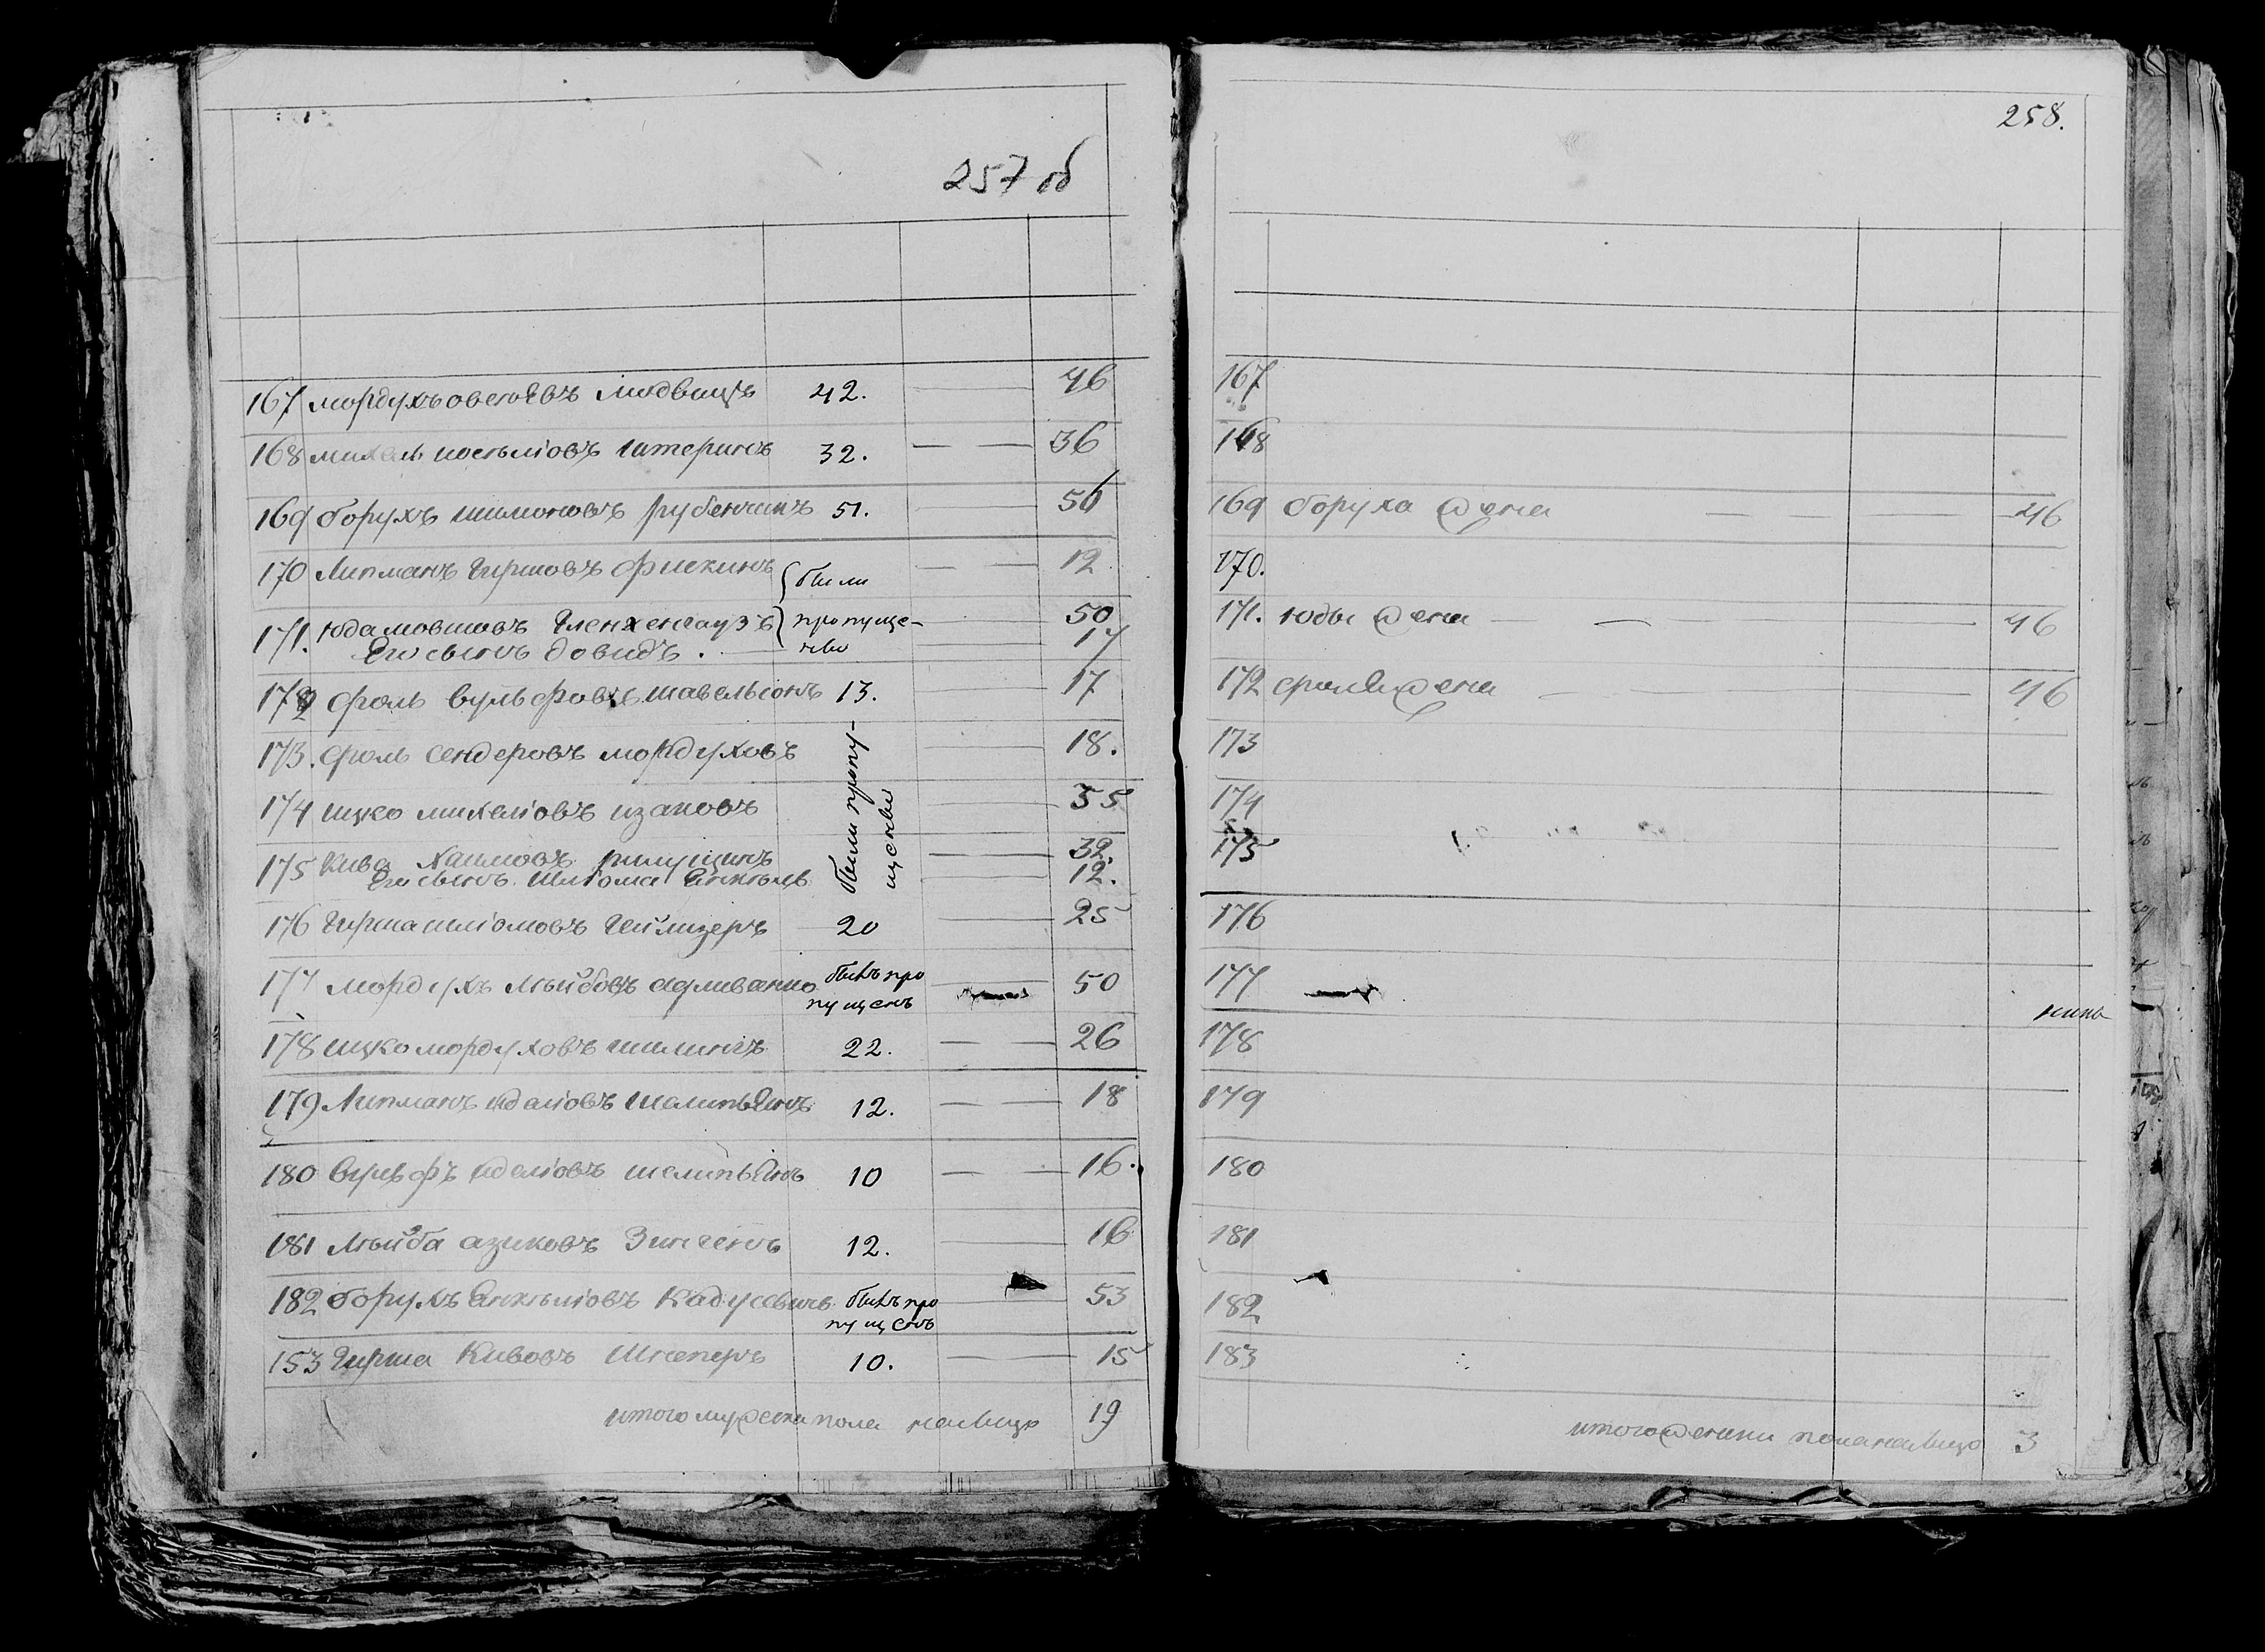 257 об
167 Мордухъ овсеевъ Мидвицъ 42. — 46
168 михель иосьліовъ Штеринъ 32. — — 36
169 борухъ шимоновъ рубенчикъ 51. — 56
170 Липманъ Гиршовъ Фискинъ — — 12
были
171. Юда мовшовъ — 50
пропуще-
Его сынъ довидъ. — 17
ны
172 Фроль вульфовъ шавельсонъ 13. — 17
173. Фроль сендеровъ мордуховъ — 18.
174 ицко михеліовъ изаковъ — 35
были пропу-
щены
175 Кива Хаимовъ — 32.
Его сынъ Шліома — 12.
176 Гирша шліомовъ Гейлизеръ 20 — 25
177 Мордухъ Лейбовъ был про — 50
пущенъ
178 ицко мордуховъ шилингъ 22. — — 26
179 Липманъ иделіовъ 12. — — 18
180 Вульфъ иделіовъ 10 — — 16.
181 Лейба азиковъ Зингенъ 12. — 16
182 борухъ Янкеліовъ Кадусевичъ былъ про — 53
пущенъ
153 Гирша Кивовъ 10. — 15
итого мужеска пола налицо 19
258.
167
168
169 боруха жена — — — 46
170.
171. юды жена — — — 46
172 фроля жена — — — 46
173
174
175
176
177
178
179
180
181
182
183
итого женска пола налицо 3